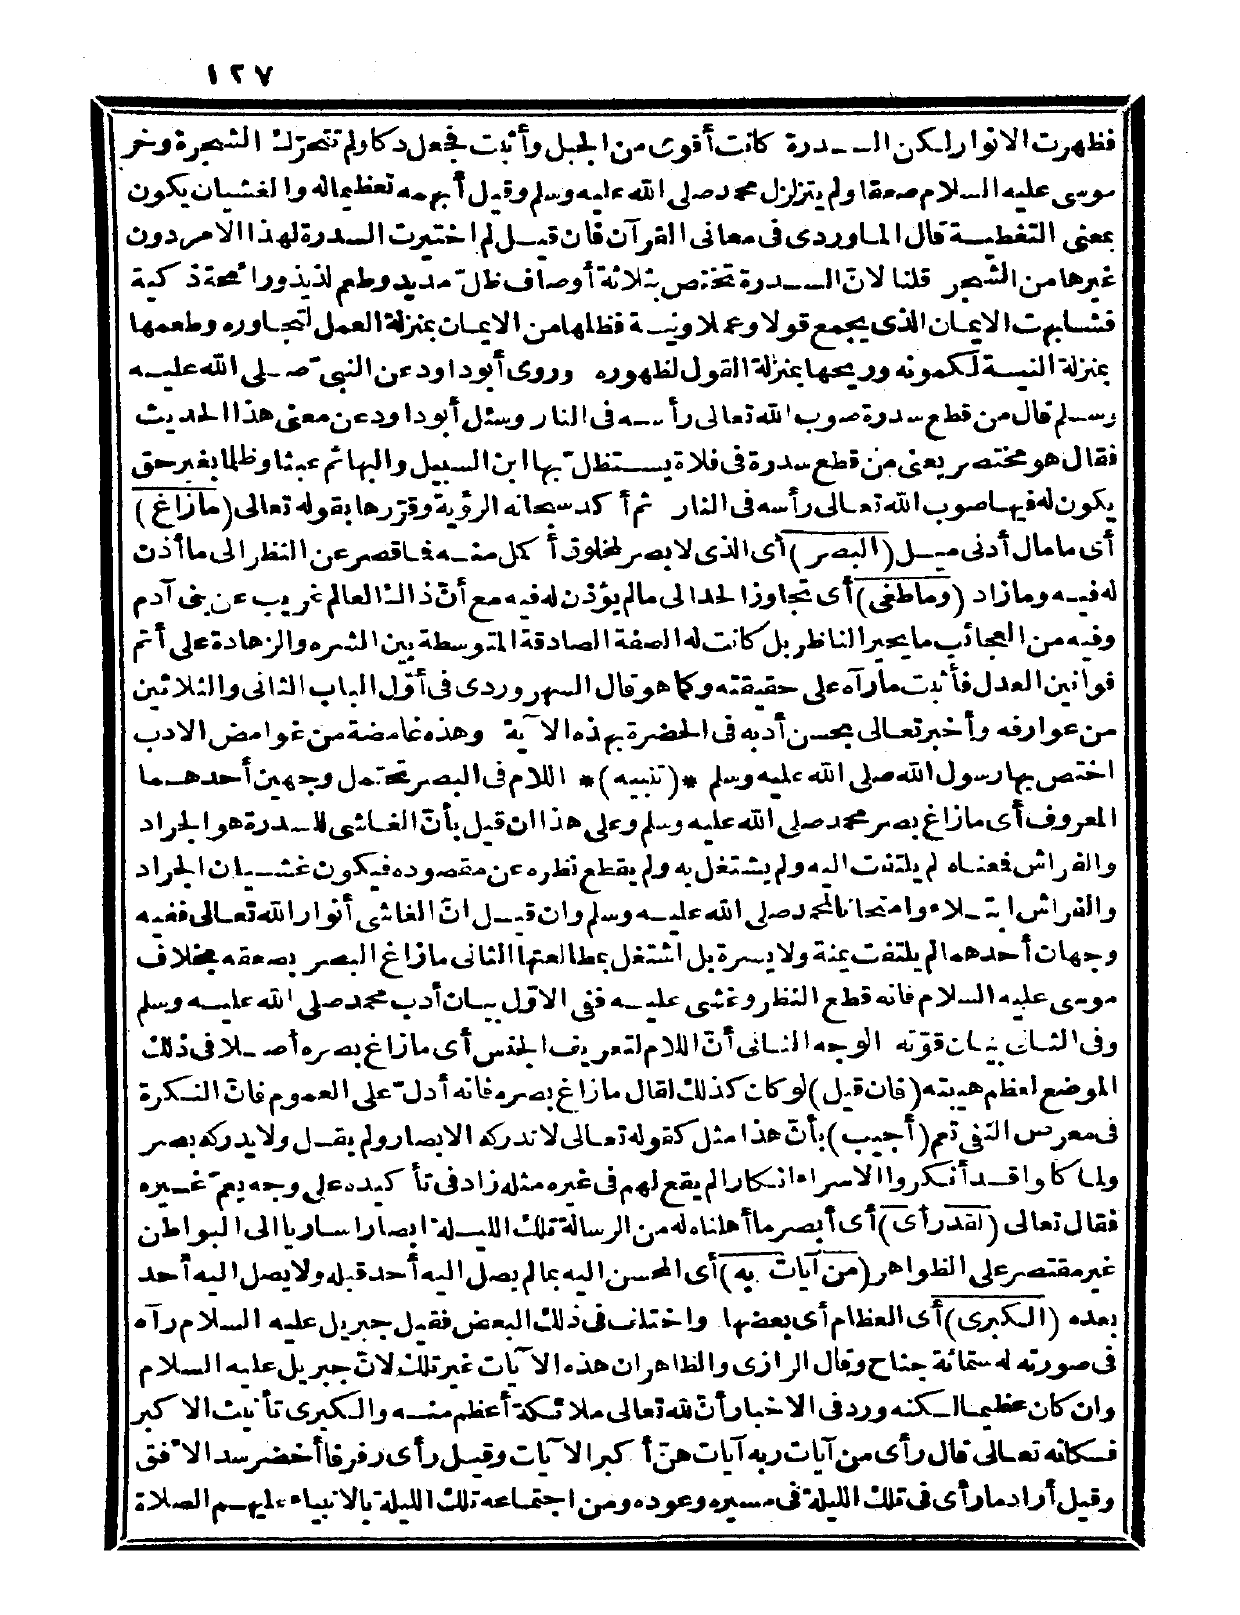 ١٢٧
فظهرت الانوار لكن السـدرة كانت أقوى من الجبل وأثبت فجعل دكا ولم تتحرّك الشجرة وخر
موسى عليه السلام صعقا ولم يتزلزل محمد صلى الله عليه وسلم وقيل أبهمه تعظيما له والغشيان يكون
بمعنى التغطيـة قال الماوردى فى معانى القرآن فان قيـل لم اختيرت السدرة لهذا الامر دون
غيرها من الشجر قلنا لانّ السـدرة تختص بثلاثة أوصاف ظلّ مديد وطعم لذيذ ورائحة ذكية
فشابهت الايمان الذى يجمع قولا وعملا ونيـة فظلها من الايمان بمنزلة العمل لتجاوره وطعمها
بمنزلة النيـة لكمونه وريحها بمنزلة القول لظهوره وروى أبو داود عن النبىّ صـلى الله عليـه
وسـلم قال من قطع سدرة صوب الله تعالى رأسـه فى النار وسئل أبو داود عن معنى هذا الحديث
فقال هو مختصر يعنى من قطع سدرة فى فلاة يستظلّ بها ابن السبيل والبهائم عبثا وظلما بغير حق
يكون له فيها صوب الله تعالى رأسه فى النار ثم أكد سبحانه الرؤية وقرّرها بقوله تعالى (مازاغ)
أى ما مال أدنى ميـل (البصر) أى الذى لا بصر لمخلوق أكمل منـه فما قصر عن النظر الى ما أذن
له فيـه وما زاد (وماطغى) أى تجاوز الحد الى مالم يؤذن له فيه مع أنّ ذلك العالم غريب عن بنى آدم
وفيه من العجائب ما يحير الناظر بل كانت له الصفة الصادقة المتوسطة بين الشره والزهادة على أتم
قوانين العدل فأثبت ما رآه على حقيقته وكما هو قال السهروردى فى أوّل الباب الثانى والثلاثين
من عوارفه وأخبر تعالى بحسن أدبه فى الحضرة بهذه الآية وهذه غامضة من غوامض الادب
اختص بها رسول الله صلى الله عليه وسلم *(تنبيه)* اللام فى البصر تحتمل وجهين أحدهـما
المعروف أى مازاغ بصر محمد صلى الله عليه وسلم وعلى هذا ان قيل بأنّ الغاشى للسـدرة هو الجراد
والفراش فمعناه لم يلتفت اليه ولم يشتغل به ولم يقطع نظره عن مقصوده فيكون غشـيان الجراد
والفراش ابتـلاء وامتحانا لمحمد صلى الله عليـه وسلم وان قيـل انّ الغاشى أنوار الله تعالى ففيه
وجهان أحدهما لم يلتفت يمنة ولا يسرة بل اشتغل بمطالعتها الثانى مازاغ البصر بصعقه بخلاف
موسى عليه السلام فانه قطع النظر وغشى عليـه ففى الاوّل بيـان أدب محمد صلى الله عليـه وسلم
وفى الثـانى بيـان قوّته الوجه الثـانى أنّ اللام لتعريف الجنس أى مازاغ بصره أصـلا فى ذلك
الموضع لعظم هيبته (فان قيل) لو كان كذلك لقال مازاغ بصره فانه أدلّ على العموم فانّ النـكرة
فى معرض النفى تعم (أجيب) بأنّ هذا مثل كقوله تعالى لا تدركه الابصار ولم يقـل ولا يدركه بصر
ولما كانوا قـد أنكروا الاسراء انـكارا لم يقع لهم فى غيره مثله زاد فى تأكيده على وجه يعمّ غـيره
فقال تعالى (لقد رأى) أى أبصر ما أهلناه له من الرسالة تلك الليـلة ابصارا ساريا الى البواطن
غير مقتصر على الظواهر (من آيات ربه) أى المحسن اليه بمالم يصل اليه أحد قبله ولا يصل اليه أحد
بعده (الـكبرى) أى العظام أى بعضها واختلف فى ذلك البعض فقيل جبريل عليه السلام رآه
فى صورته له ستمائة جناح وقال الرازى والظاهر ان هذه الآيات غير تلك لانّ جبريل عليه السلام
وان كان عظيما لـكنه ورد فى الاخبار أنّ لله تعالى ملائكة أعظم منـه والـكبرى تأنيث الاكبر
فـكانه تعـالى قال رأى من آيات ربه آيات هنّ أكبر الآيات وقيـل رأى رفرفا أخضر سد الافق
وقيل أراد ما رأى فى تلك الليلة فى مسيره وعوده ومن اجتماعه تلك الليلة بالانبياء عليهـم الصلاة